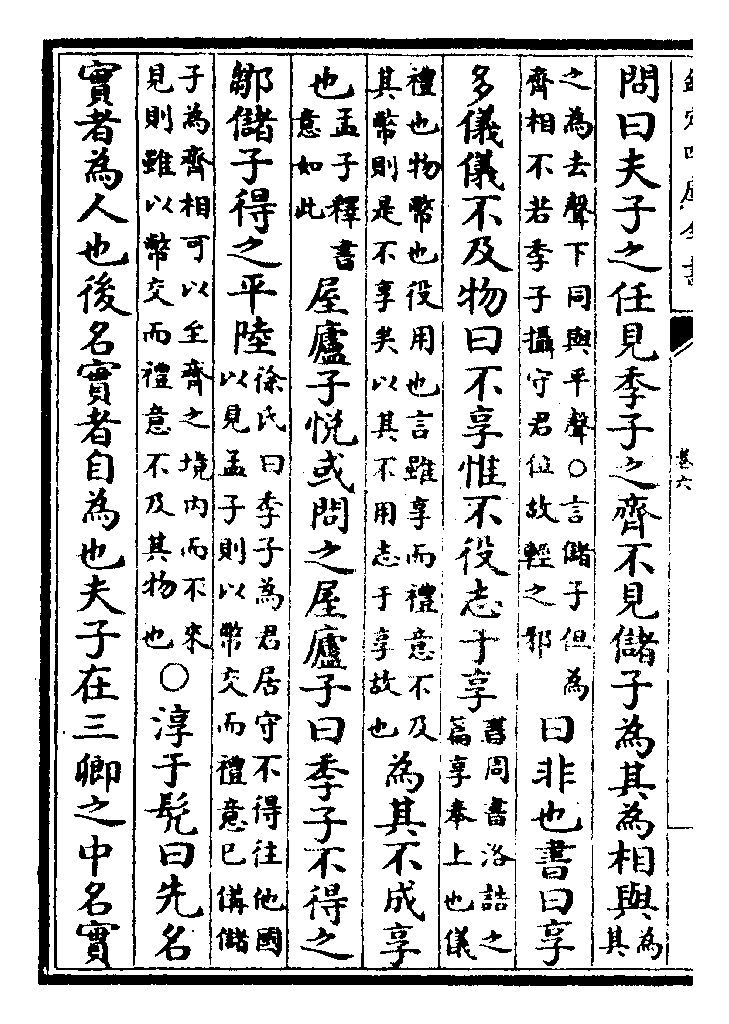 欽定四庫全書 卷六
問曰夫子之任見季子之齊不見儲子為其為相與為其
之為去聲下同與平聲○言儲子但為
齊相不若季子攝守君位故輕之邪
曰非也書曰享
多儀儀不及物曰不享惟不役志于享
書周書洛誥之
篇享奉上也儀
禮也物幣也役用也言雖享而禮意不及
其幣則是不享矣以其不用志于享故也
為其不成享
也
孟子釋書
意如此
屋廬子悅或問之屋廬子曰季子不得之
鄒儲子得之平陸
徐氏曰季子為君居守不得往他國
以見孟子則以幣交而禮意已備儲
子為齊相可以至齊之境內而不來
見則雖以幣交而禮意不及其物也
○淳于髡曰先名
實者為人也後名實者自為也夫子在三卿之中名實